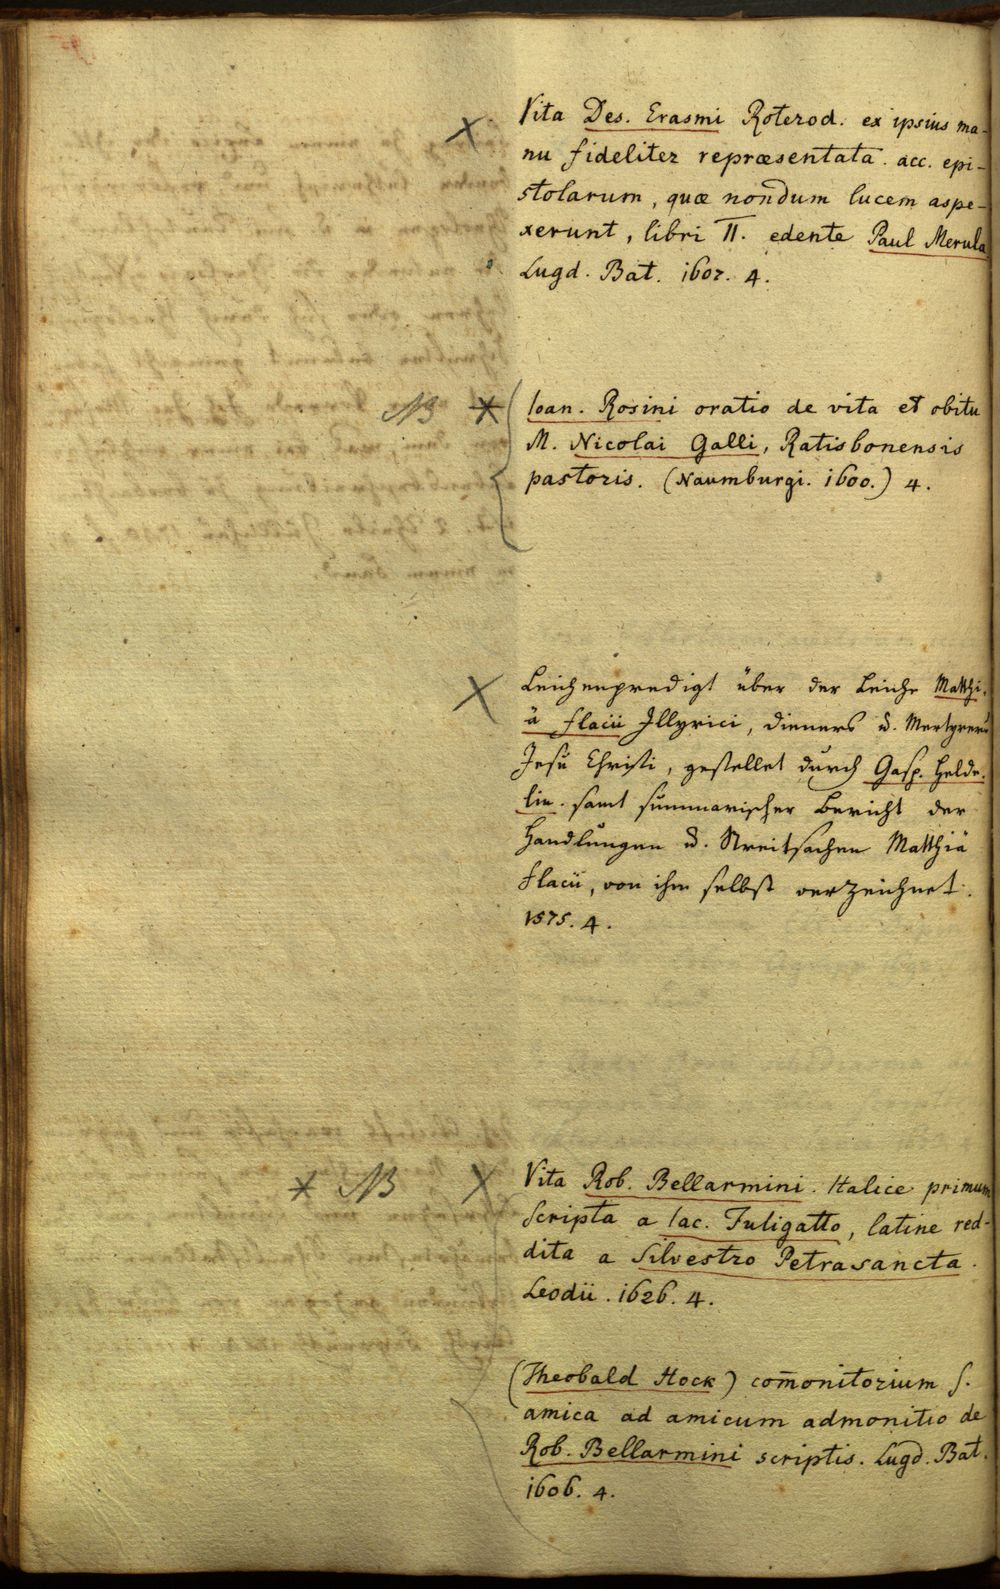 Vita Des. Erasmi Roterod. ex ipsius ma-
nu fideliter repræsentata. acc. epi-
stolarum, quæ nondum lucem aspe-
xerunt, libri II. edente Paul Merula
Lugd. Bat. 1607. 4.
NB Ioan. Rosini oratio de vita et obitu
M. Nicolai Galli, Ratisbonensis
pastoris. (Naumburgi. 1600.) 4.
Leichenpredigt über der Leiche Matthi-
ä Flacii Illyrici, dieners u. Mertyrers
Jesu Christi, gestellet durch Casp. Helde-
lin. samt summarischer Bericht der
Handlungen u. Streitsachen Matthiä
Flacii, von ihm selbst verzeichnet.
1575. 4.
NB Vita Rob. Bellarmini. Italice primum
scripta a Iac. Fuligatto, latine red-
dita a Silvestro Petrasancta.
Leodii. 1626. 4.
(Theobald Hock) com̄onitorium s.
amica ad amicum admonitio de
Rob. Bellarmini scriptis. Lugd. Bat.
1606. 4.